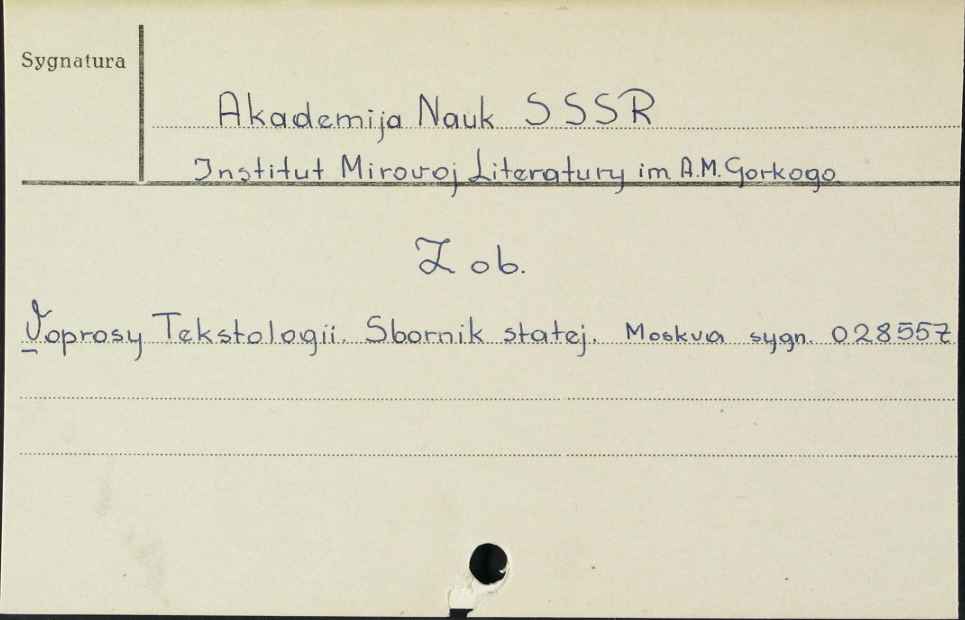 Sygnatura
Akademija Nauk SSSR
Institut Mirovoj Literatury im A.M. Gorkogo
Zob.
Voprosy Tekstologii. Sbornik statej. Moskva sygn. 028557